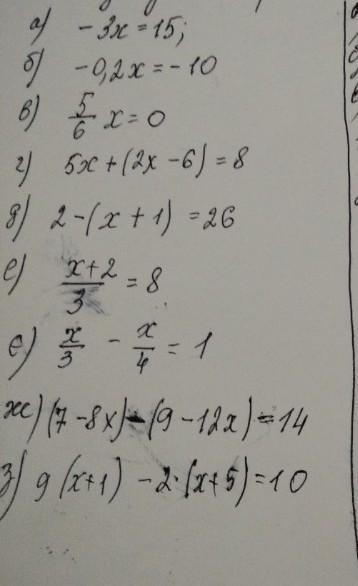 а) -3x = 15;
б) -0,2x = -10
в) 5/6 x = 0
г) 5x + (2x - 6) = 8
д) 2 - (x + 1) = 26
е) x+2/3 = 8
е) x/3 - x/4 = 1
ж) (7 - 8x) - (9 - 12x) = 14
з) 9 (x+1) - 2·(x+5) = 10